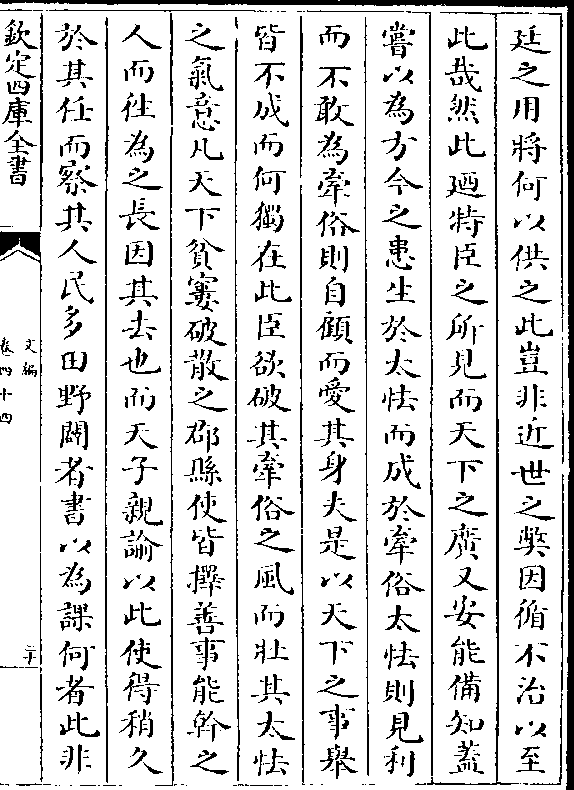 廷之用將何以供之此豈非近世之弊因循不治以至
此哉然此廼特臣之所見而天下之廣又安能備知蓋
嘗以為方今之患生於太怯而成於牽俗太怯則見利
而不敢為牽俗則自顧而愛其身夫是以天下之事舉
皆不成而何獨在此臣欲破其牽俗之風而壯其太怯
之氣意凡天下貧窶破散之郡縣使皆擇善事能幹之
人而往為之長因其去也而天子親諭以此使得稍久
於其任而察其人民多田野闢者書以為課何者此非
欽定四庫全書
文編
卷四十四